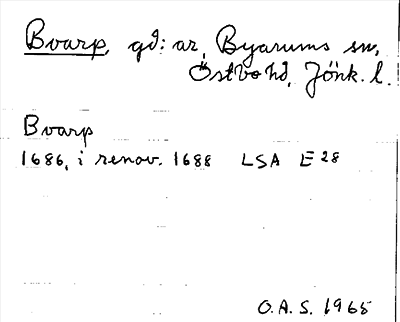 Bvarp, gd: ar, Byarums sn,
Östbo hd, Jönk. l.
Bvarp
1686, i renov. 1688 LSA E 28
O.A.S. 1965